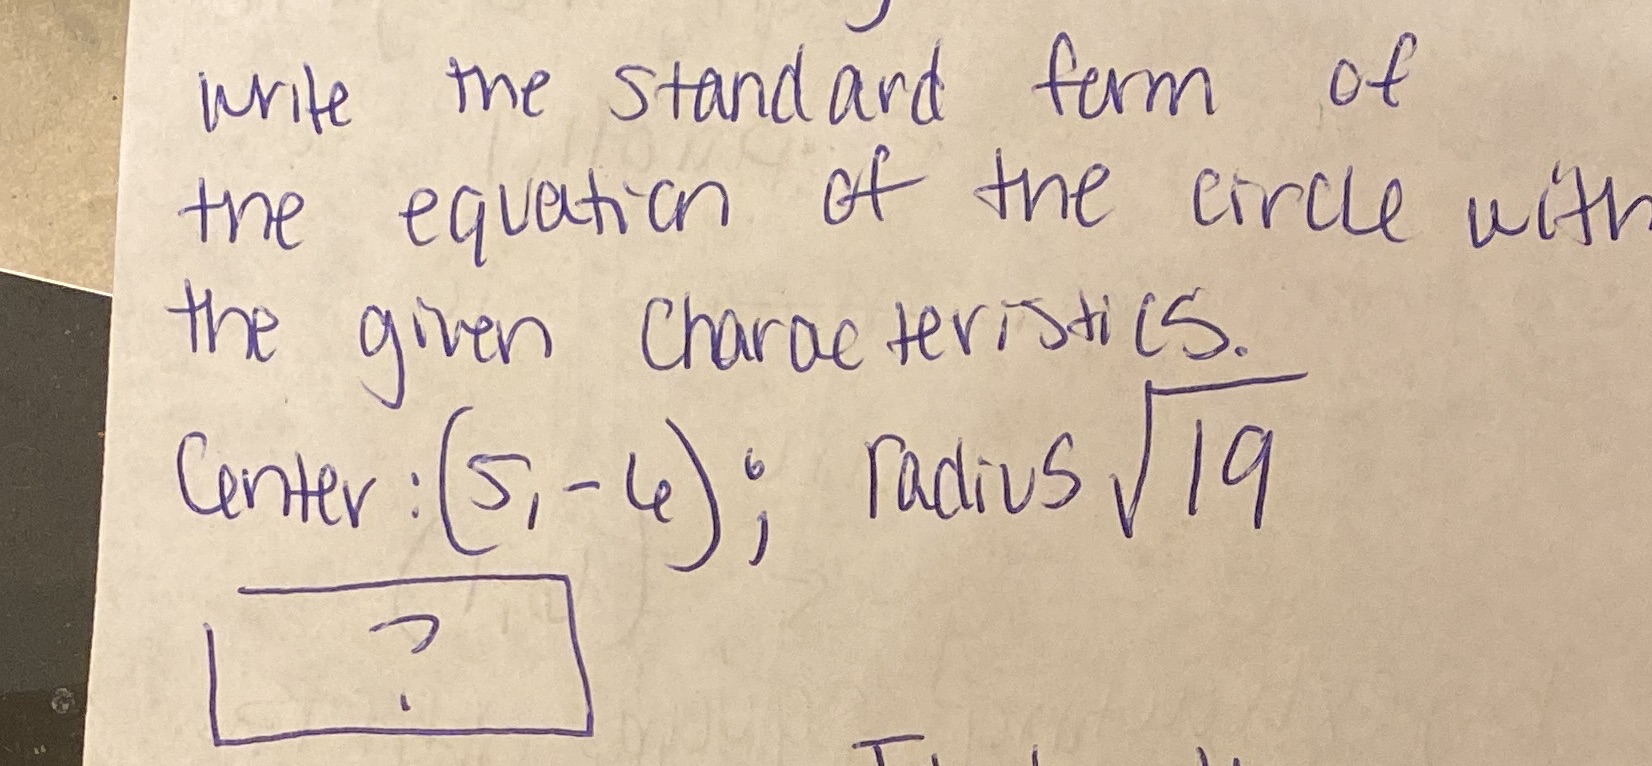 write the standard form of
the equation of the circle with
the given characteristics.
Center: (5, -6); radius √19
?